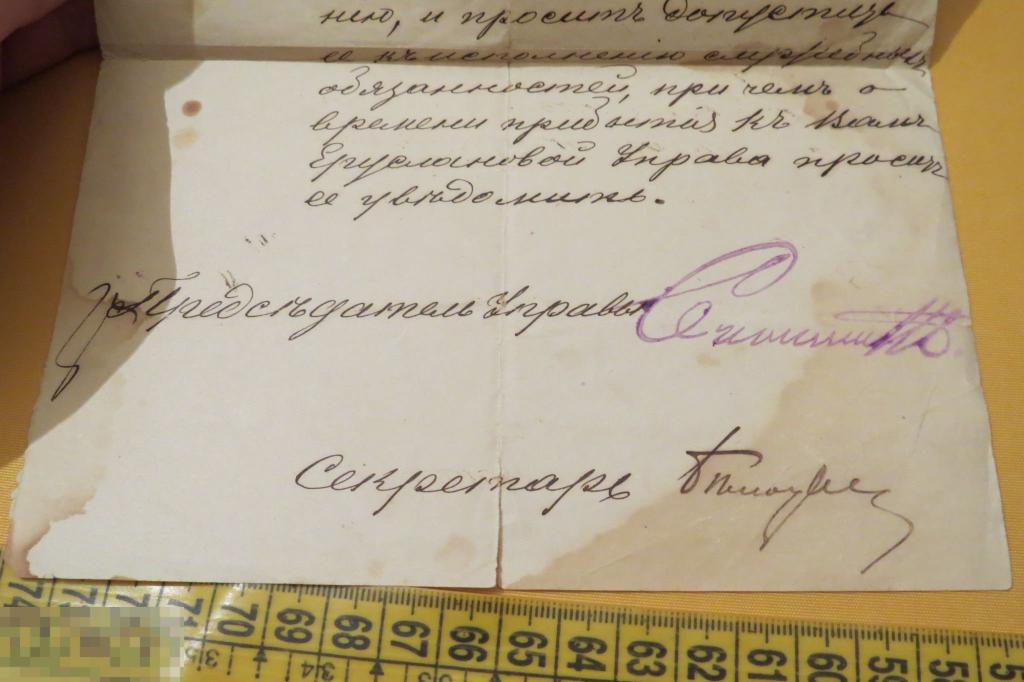 нію, и проситъ допустить
ее къ исполненію служебныхъ
обязанностей, при чемъ о
времени прибытія къ Вамъ
Еруслановой Управа проситъ
ее увѣдомить.
Предсѣдатель Управы
Секретарь
74 73 72 71 70 69 68 67 66 65 64 63 62 61 60 59 58
35 34